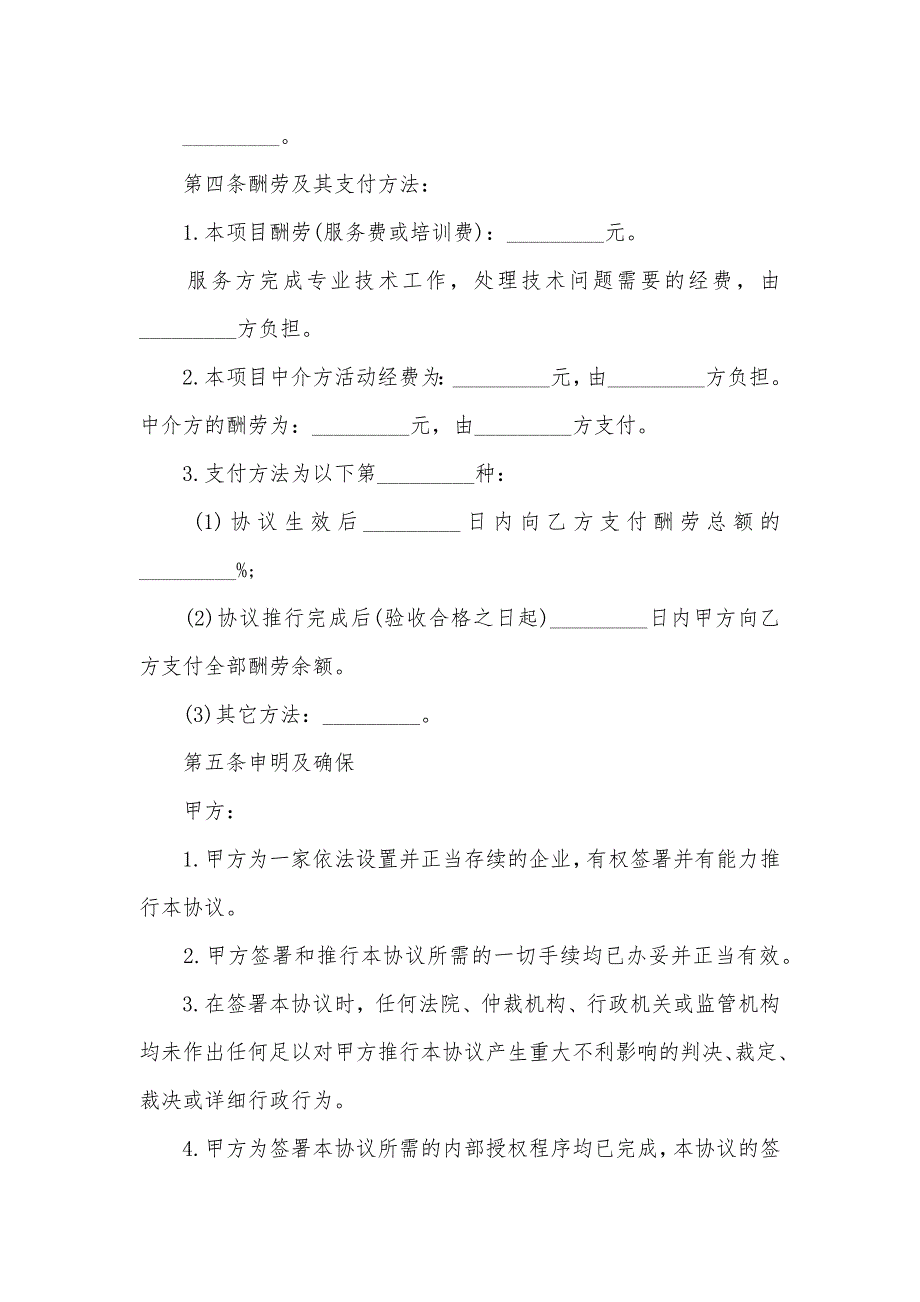 _________。
第四条酬劳及其支付方法：
1.本项目酬劳(服务费或培训费)：_________元。
服务方完成专业技术工作，处理技术问题需要的经费，由
_________方负担。
2.本项目中介方活动经费为：_________元，由_________方负担。
中介方的酬劳为：_________元，由_________方支付。
3.支付方法为以下第_________种：
(1)协议生效后_________日内向乙方支付酬劳总额的
_________%；
(2)协议推行完成后(验收合格之日起)_________日内甲方向乙
方支付全部酬劳余额。
(3)其它方法：_________。
第五条申明及确保
甲方：
1.甲方为一家依法设置并正当存续的企业，有权签署并有能力推
行本协议。
2.甲方签署和推行本协议所需的一切手续均已办妥并正当有效。
3.在签署本协议时，任何法院、仲裁机构、行政机关或监管机构
均未作出任何足以对甲方推行本协议产生重大不利影响的判决、裁定、
裁决或详细行政行为。
4.甲方为签署本协议所需的内部授权程序均已完成，本协议的签